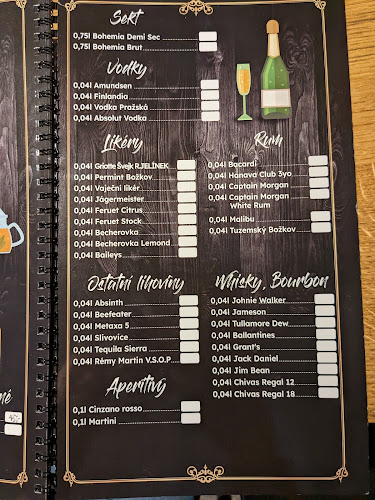 Sekt
0,75l Bohemia Demi Sec
0,75l Bohemia Brut
Vodky
0,04l Amundsen
0,04l Finlandia
0,04l Vodka Pražská
0,04l Absolut Vodka
Likéry
0,04l Griotte Švejk R.JELÍNEK
0,04l Permint Božkov
0,04l Vaječní likér
0,04l Jägermeister
0,04l Feruet Citrus
0,04l Feruet Stock
0,04l Becherovka
0,04l Becherovka Lemond
0,04l Baileys
Rum
0,04l Bacardi
0,04l Hanava Club 3yo
0,04l Captain Morgan
0,04l Captain Morgan
White Rum
0,04l Malibu
0,04l Tuzemský Božkov
Ostatní lihoviny
0,04l Absinth
0,04l Beefeater
0,04l Metaxa 5
0,04l Slivovice
0,04l Tequila Sierra
0,04l Rémy Martin V.S.O.P
Whisky, Bourbon
0,04l Johnie Walker
0,04l Jameson
0,04l Tullamore Dew
0,04l Ballantines
0,04l Grant's
0,04l Jack Daniel
0,04l Jim Bean
0,04l Chivas Regal 12
0,04l Chivas Regal 18
Aperitivy
0,1l Cinzano rosso
0,1l Martini